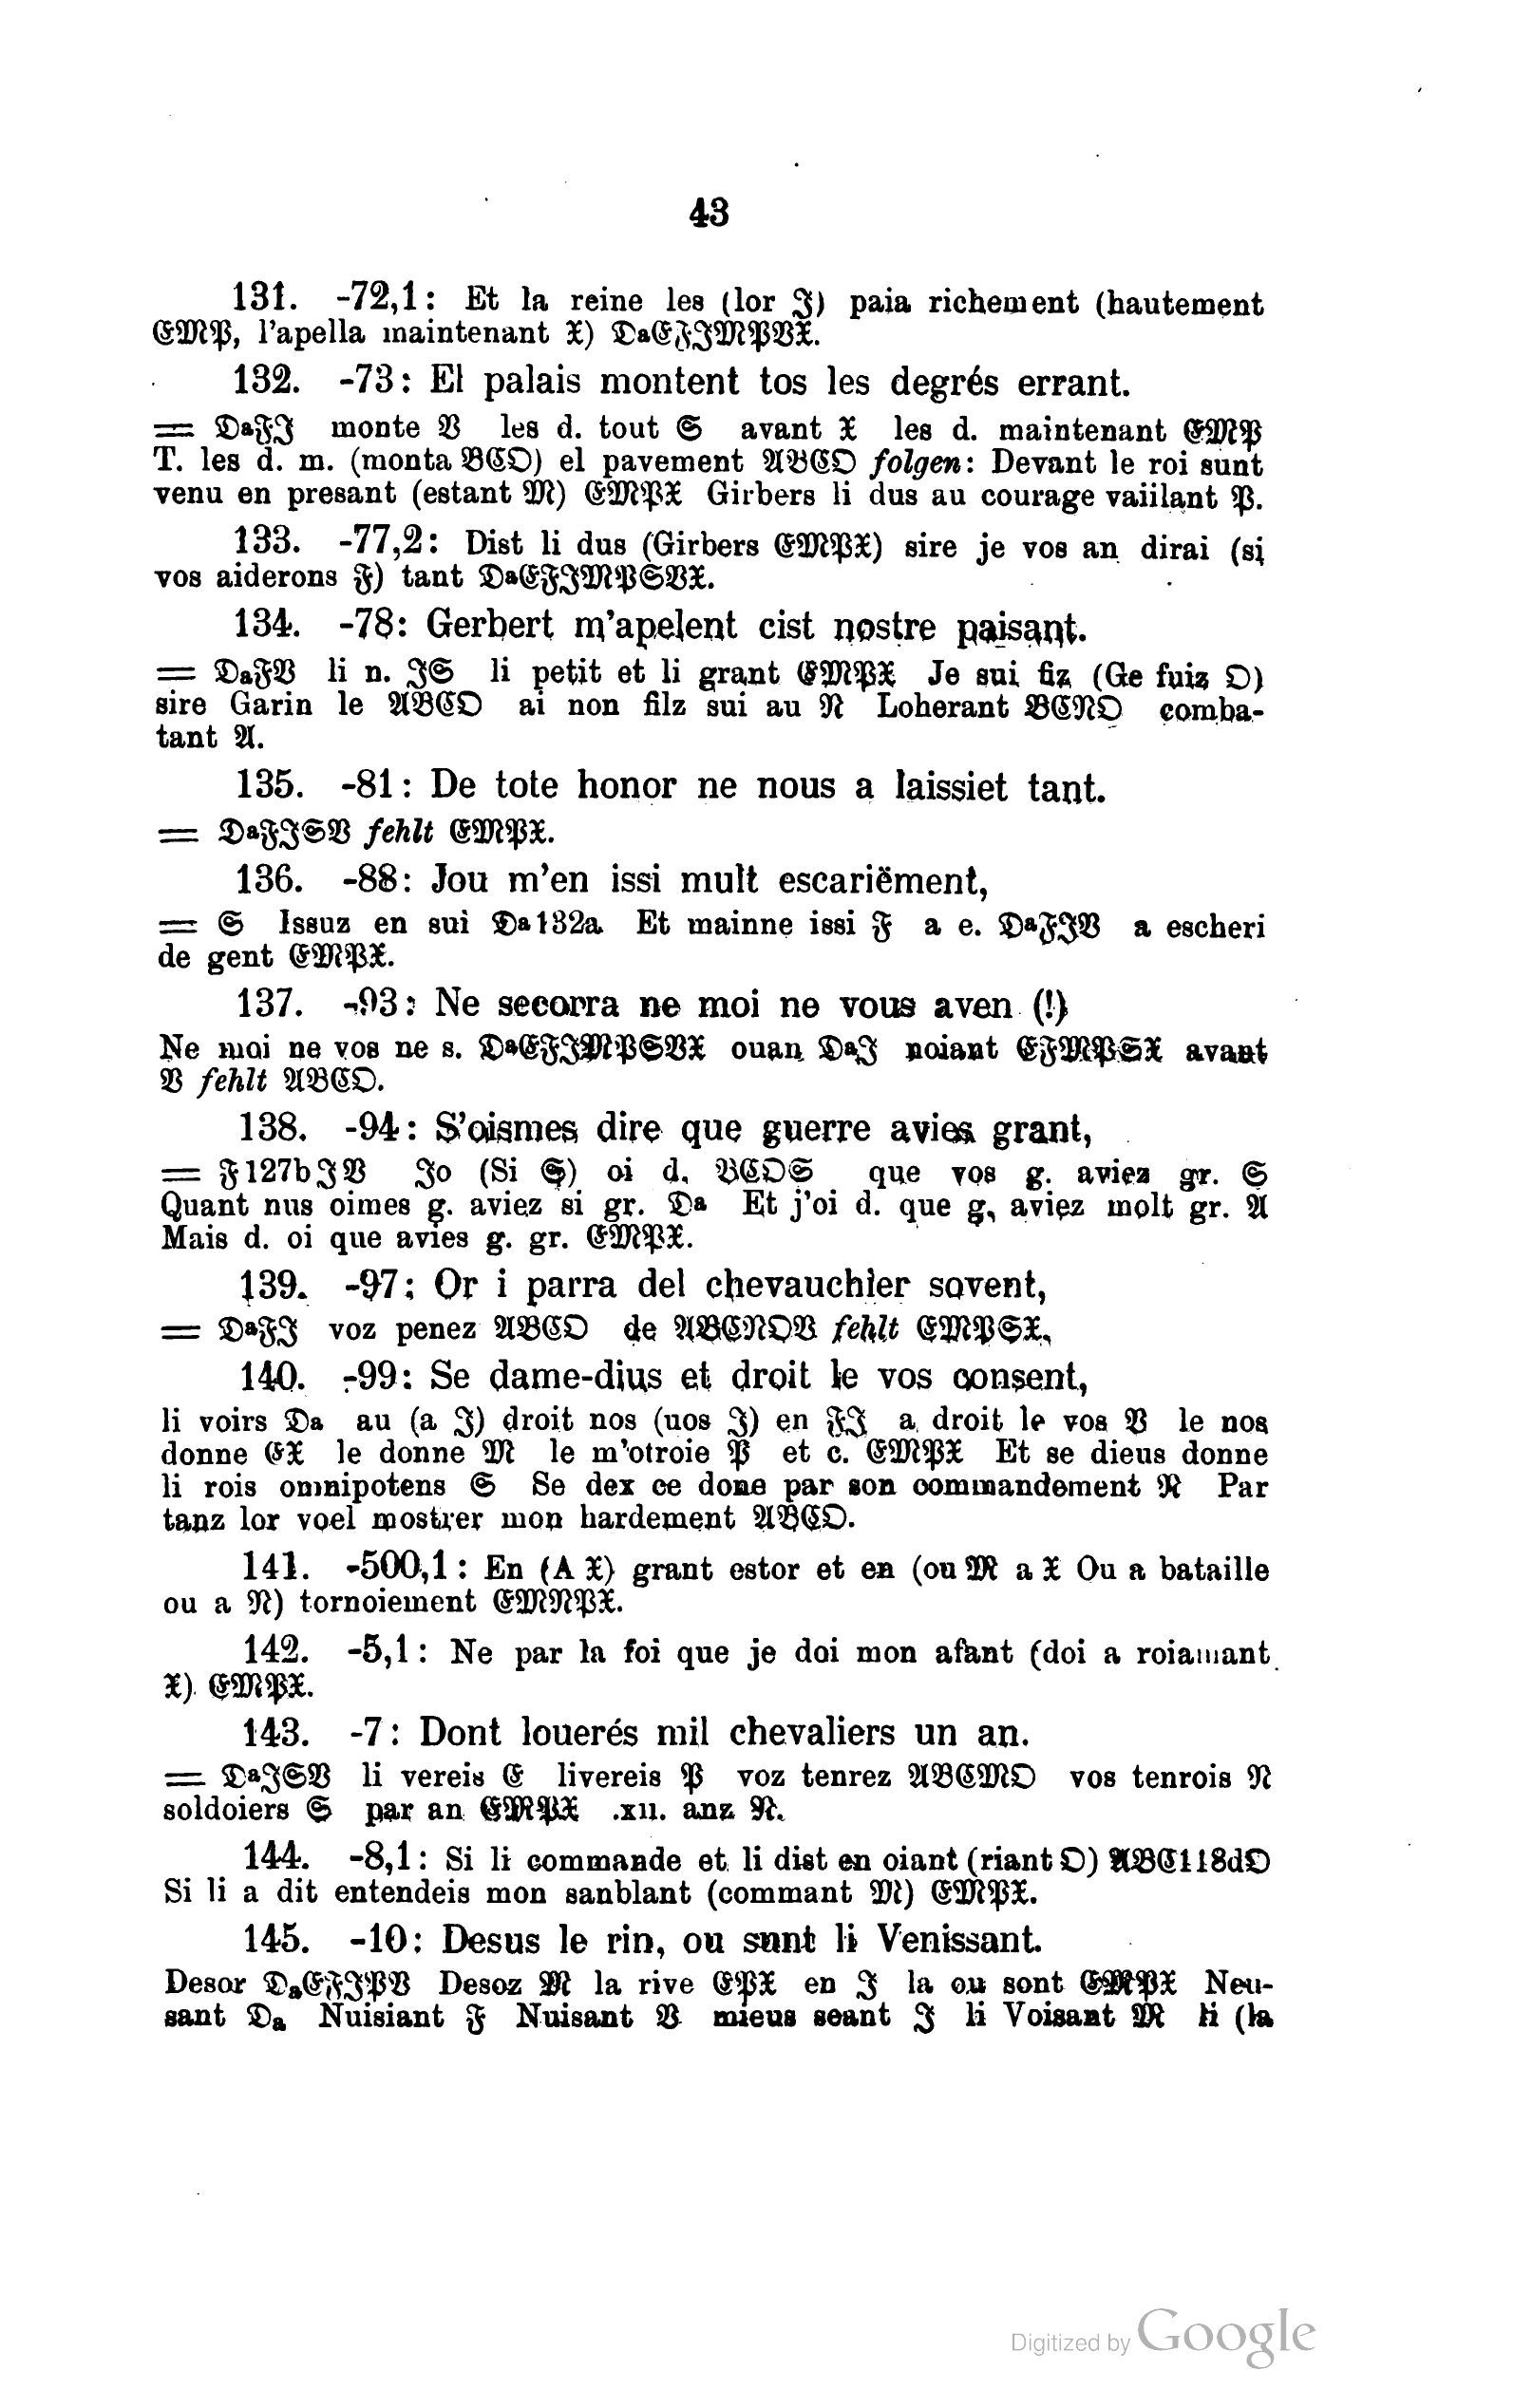 43
131. -72,1: Et la reine les (lor 𝕴) paia richement (hautement
𝕰𝕸𝕻, l'apella maintenant 𝖃) 𝕯a𝕰𝕱𝕴𝕸𝕻𝖁𝖃.
132. -73: El palais montent tos les degrés errant.
= 𝕯a𝕱𝕴 monte 𝖁 les d. tout 𝕾 avant 𝖃 les d. maintenant 𝕰𝕸𝕻
T. les d. m. (monta 𝕭𝕮𝕺) el pavement 𝕬𝕭𝕮𝕺 folgen: Devant le roi sunt
venu en presant (estant 𝕸) 𝕰𝕸𝕻𝖃 Girbers li dus au courage vaiilant 𝕻.
133. -77,2: Dist li dus (Girbers 𝕰𝕸𝕻𝖃) sire je vos an dirai (si
vos aiderons 𝕱) tant 𝕯a𝕰𝕱𝕴𝕸𝕻𝕾𝖁𝖃.
134. -78: Gerbert m'apelent cist nostre paisant.
= 𝕯a𝕱𝖁 li n. 𝕴𝕾 li petit et li grant 𝕰𝕸𝕻𝖃 Je sui fiz (Ge fuiz 𝕺)
sire Garin le 𝕬𝕭𝕮𝕺 ai non filz sui au 𝕹 Loherant 𝕭𝕮𝕹𝕺 comba-
tant 𝕬.
135. -81: De tote honor ne nous a laissiet tant.
= 𝕯a𝕱𝕴𝕾𝖁 fehlt 𝕰𝕸𝕻𝖃.
136. -88: Jou m'en issi mult escariëment,
= 𝕾 Issuz en sui 𝕯a132a Et mainne issi 𝕱 a e. 𝕯a𝕱𝕴𝖁 a escheri
de gent 𝕰𝕸𝕻𝖃.
137. -93: Ne secorra ne moi ne vous aven (!)
Ne moi ne vos ne s. 𝕯a𝕰𝕱𝕴𝕸𝕻𝕾𝖁𝖃 ouan 𝕯a𝕴 noiant 𝕰𝕱𝕸𝕻𝕾𝖃 avant
𝖁 fehlt 𝕬𝕭𝕮𝕺.
138. -94: S'oismes dire que guerre avies grant,
= 𝕱127b𝕴𝖁 Jo (Si 𝕾) oi d. 𝕭𝕮𝕺𝕾 que vos g. aviez gr. 𝕾
Quant nus oimes g. aviez si gr. 𝕯a Et j'oi d. que g. aviez molt gr. 𝕬
Mais d. oi que avies g. gr. 𝕰𝕸𝕻𝖃.
139. -97: Or i parra del chevauchier sovent,
= 𝕯a𝕱𝕴 voz penez 𝕬𝕭𝕮𝕺 de 𝕬𝕭𝕮𝕹𝕺𝖁 fehlt 𝕰𝕸𝕻𝕾𝖃.
140. -99: Se dame-dius et droit le vos consent,
li voirs 𝕯a au (a 𝕴) droit nos (uos 𝕴) en 𝕱𝕴 a droit le vos 𝖁 le nos
donne 𝕰𝖃 le donne 𝕸 le m'otroie 𝕻 et c. 𝕰𝕸𝕻𝖃 Et se dieus donne
li rois omnipotens 𝕾 Se dex ce done par son commandement 𝕹 Par
tanz lor voel mostrer mon hardement 𝕬𝕭𝕮𝕺.
141. -500,1: En (A 𝖃) grant estor et en (ou 𝕸 a 𝖃 Ou a bataille
ou a 𝕹) tornoiement 𝕰𝕸𝕹𝕻𝖃.
142. -5,1: Ne par la foi que je doi mon afant (doi a roiamant
𝖃) 𝕰𝕸𝕻𝖃.
143. -7: Dont louerés mil chevaliers un an.
= 𝕯a𝕴𝕾𝖁 li vereis 𝕰 livereis 𝕻 voz tenrez 𝕬𝕭𝕮𝕸𝕺 vos tenrois 𝕹
soldoiers 𝕾 par an 𝕰𝕸𝕻𝖃 .xii. anz 𝕹.
144. -8,1: Si li commande et li dist en oiant (riant 𝕺) 𝕬𝕭𝕮118d𝕺
Si li a dit entendeis mon sanblant (commant 𝕸) 𝕰𝕸𝕻𝖃.
145. -10: Desus le rin, ou sunt li Venissant.
Desor 𝕯a𝕰𝕱𝕴𝕻𝖁 Desoz 𝕸 la rive 𝕰𝕻𝖃 en 𝕴 la ou sont 𝕰𝕸𝕻𝖃 Neu-
sant 𝕯a Nuisiant 𝕱 Nuisant 𝖁 mieus seant 𝕴 li Voisant 𝕸 li (la
Digitized by Google